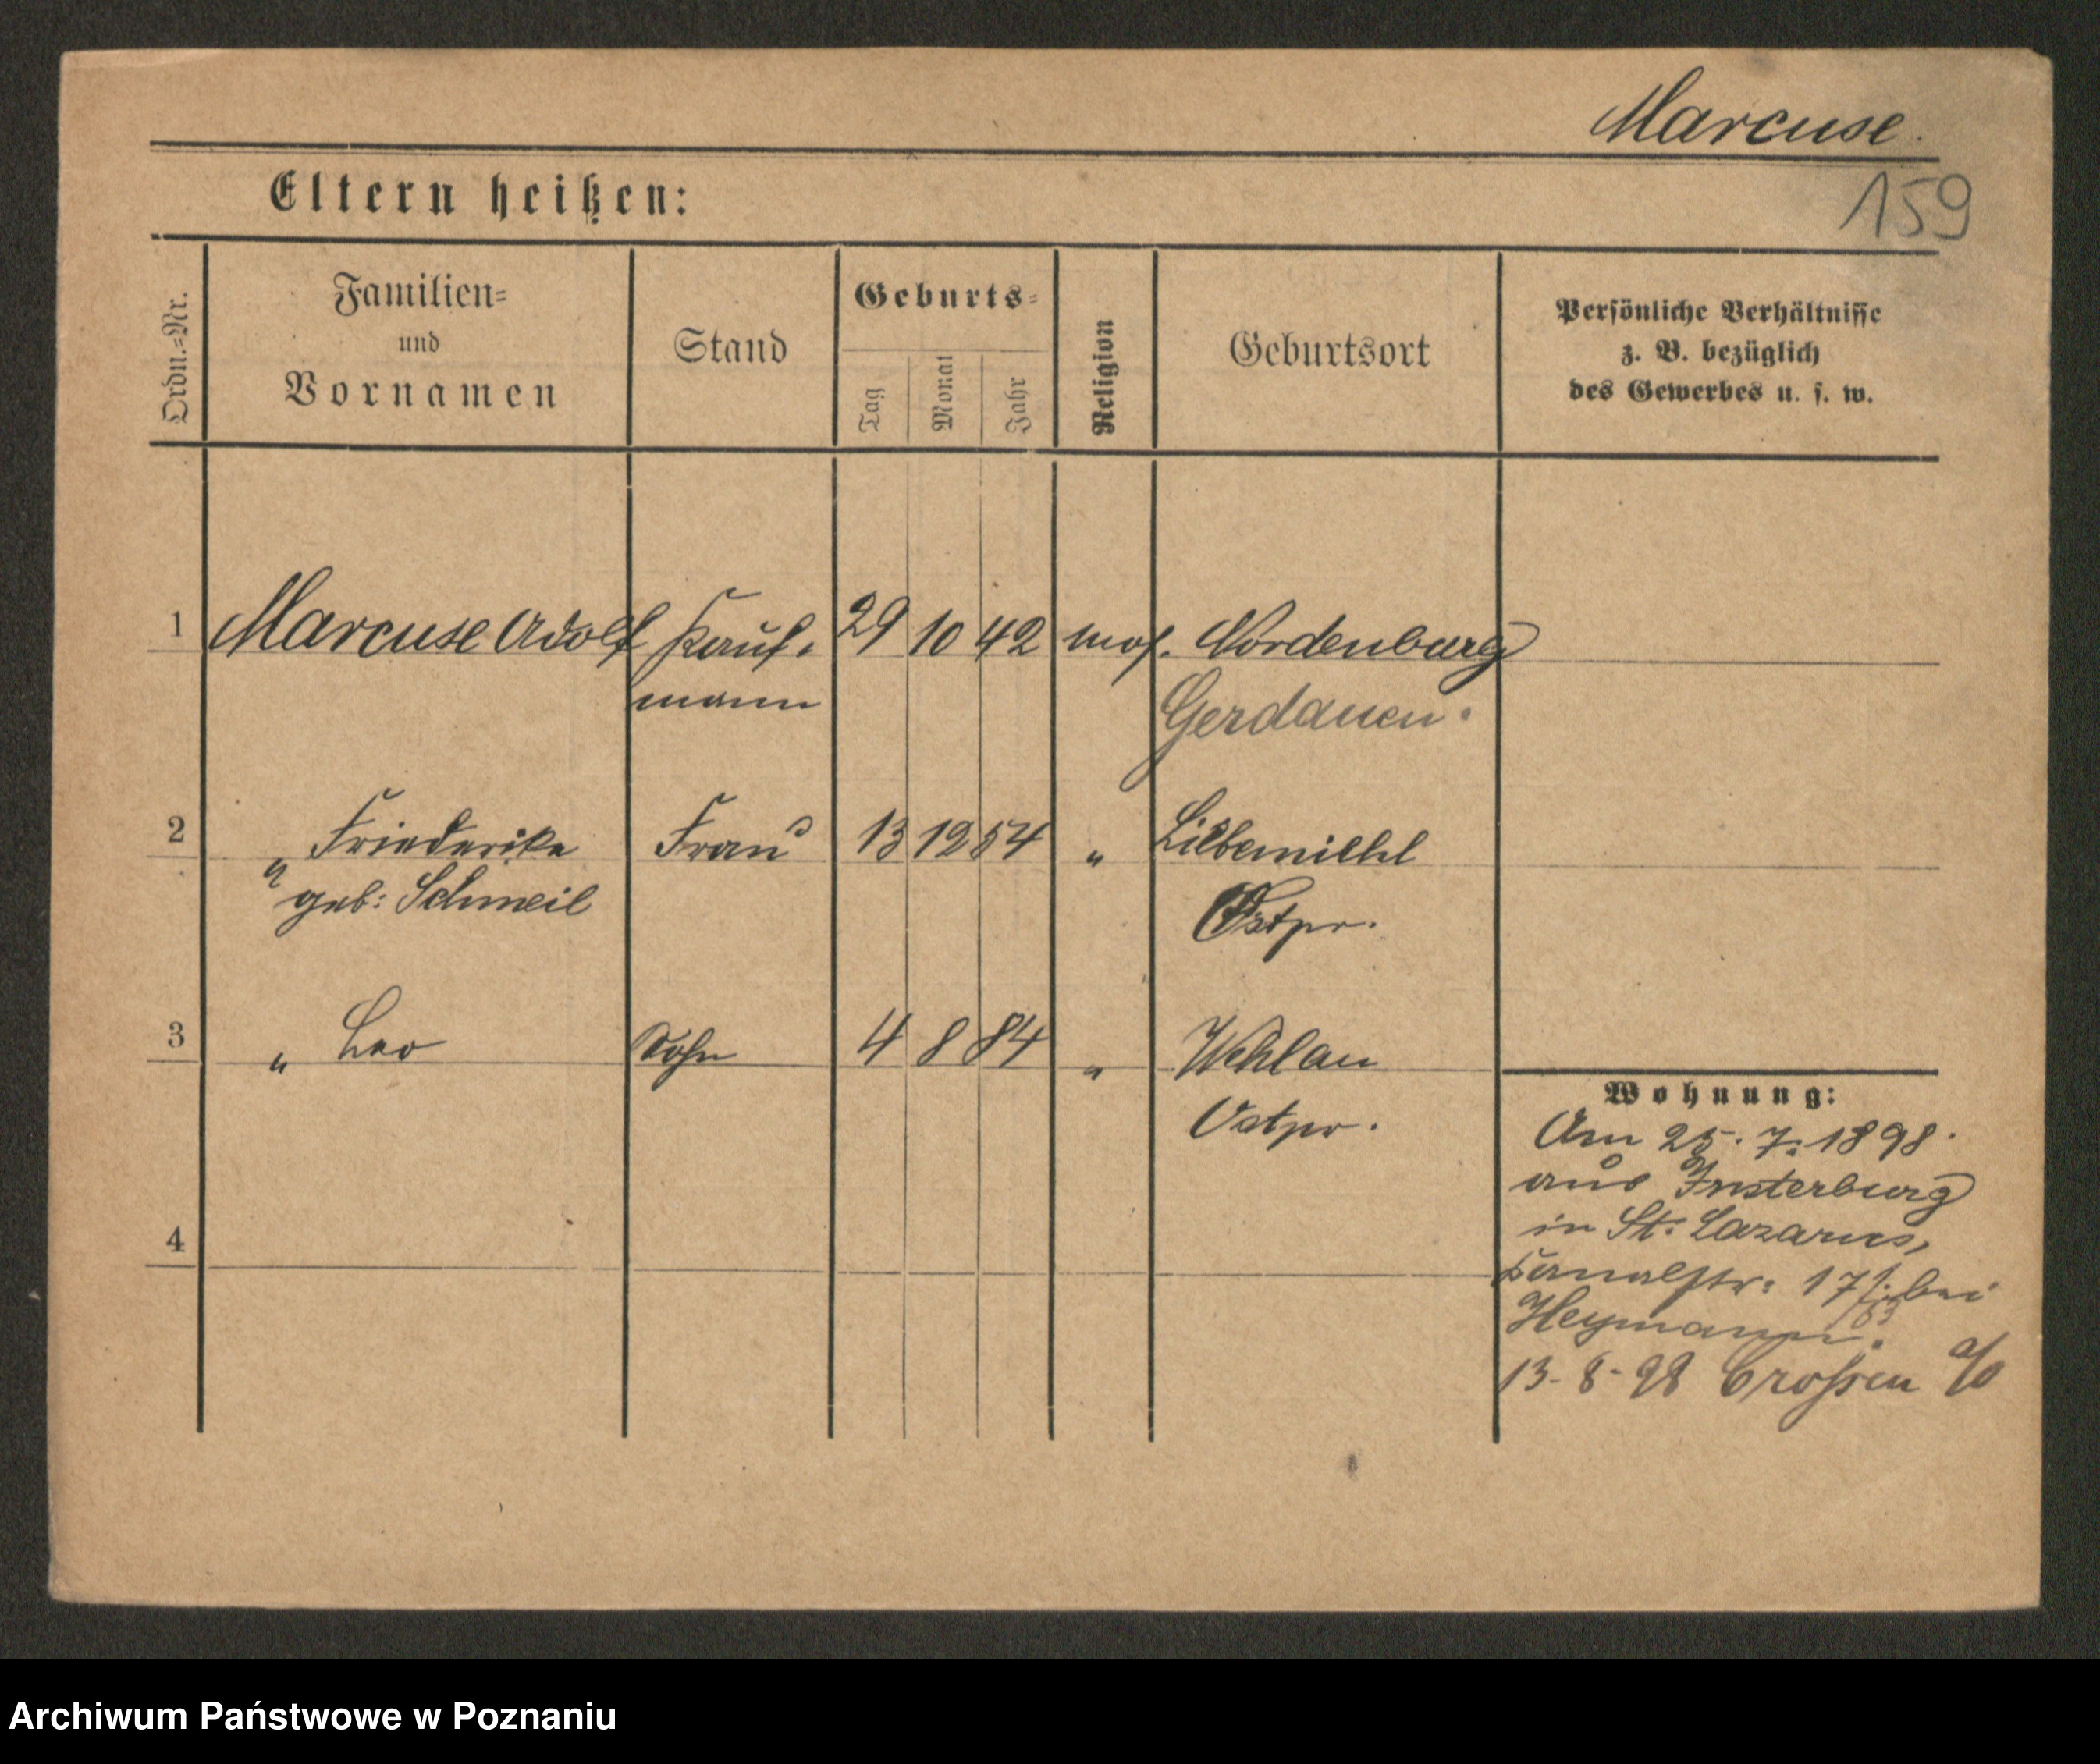 Marcuse.
159
Eltern heißen:
Ordn.=Nr.
Familien=
und
Vornamen
Stand
Geburts=
Tag
Monat
Jahr
Religion
Geburtsort
Persönliche Verhältnisse
z. B. bezüglich
des Gewerbes u. s. w.
1 Marcuse Adolf Kauf- 29 10 42 mos. Nordenburg
mann Gerdauen.
2 " Friederike Frau 13 12 54 " Liebemiehl
geb: Schmeil Ostpr.
3 " Leo Sohn 4 8 84 " Wehlau
Ostpr.
4
Wohnung:
Am 25. 7. 1898.
aus Insterburg
in St. Lazarus,
Kanalstr. 17 bei
Heymann.
13-8-98 Crossen a/O
Archiwum Państwowe w Poznaniu